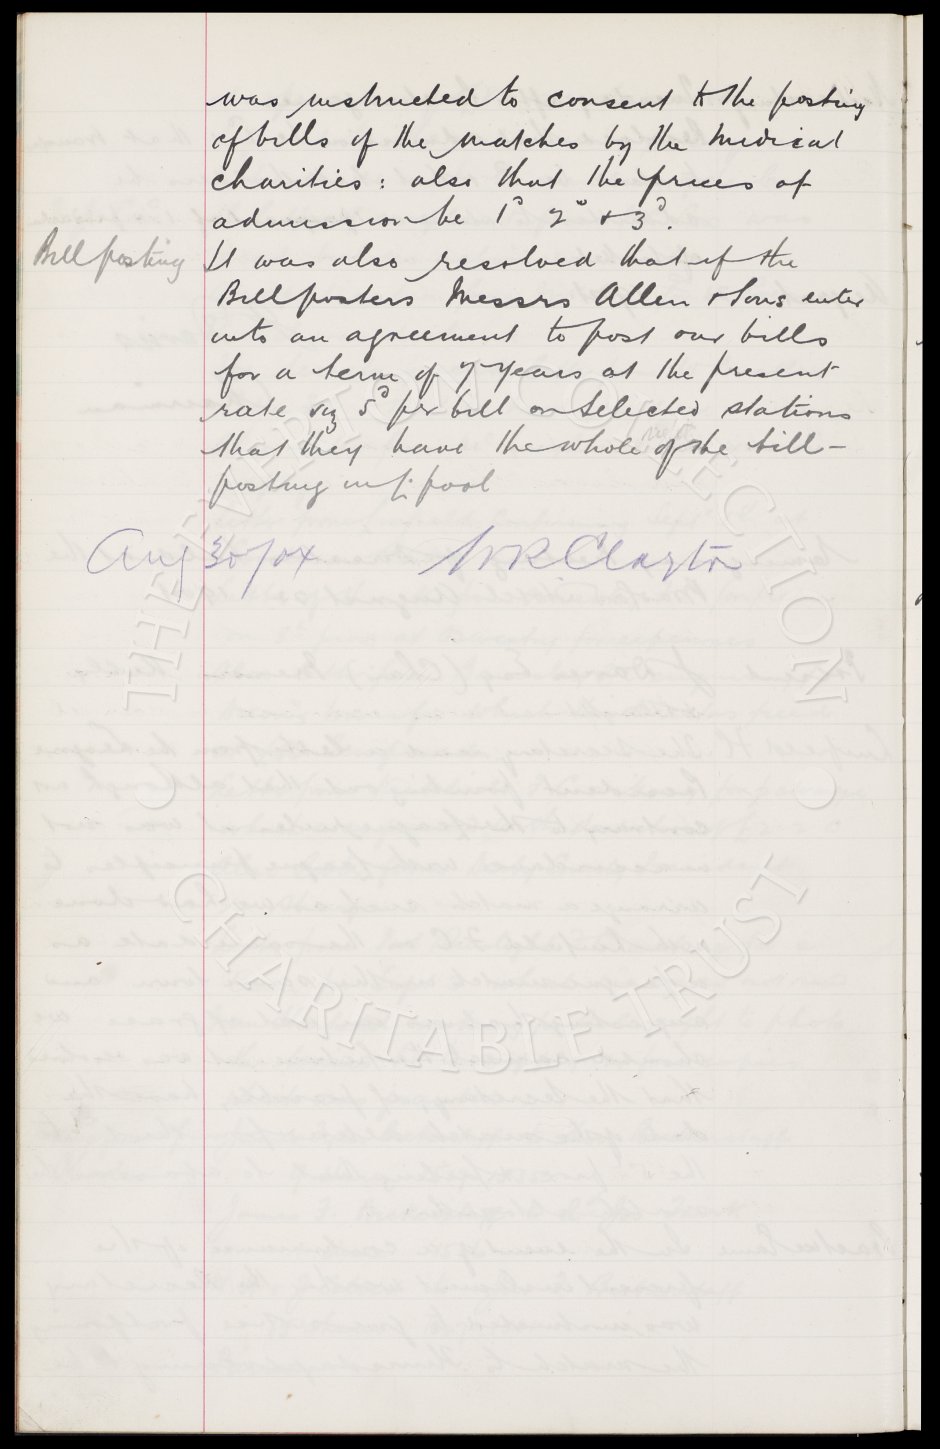 was instructed to consent to the posting
of bills of the matches by the Medical
charities : also that the prices of
admission be 1ᴰ 2ᴰ & 3ᴰ.
Bill posting It was also resolved that if the
Billposters Messrs Allen & Sons enter
into an agreement to post our bills
for a term of 7 years at the present
rate viz 5ᴰ per bill on selected stations
that they have the whole of the bill-
posting in L'pool
Aug 30/04 W R Clayton
THE EVERTON COLLECTION
CHARITABLE TRUST